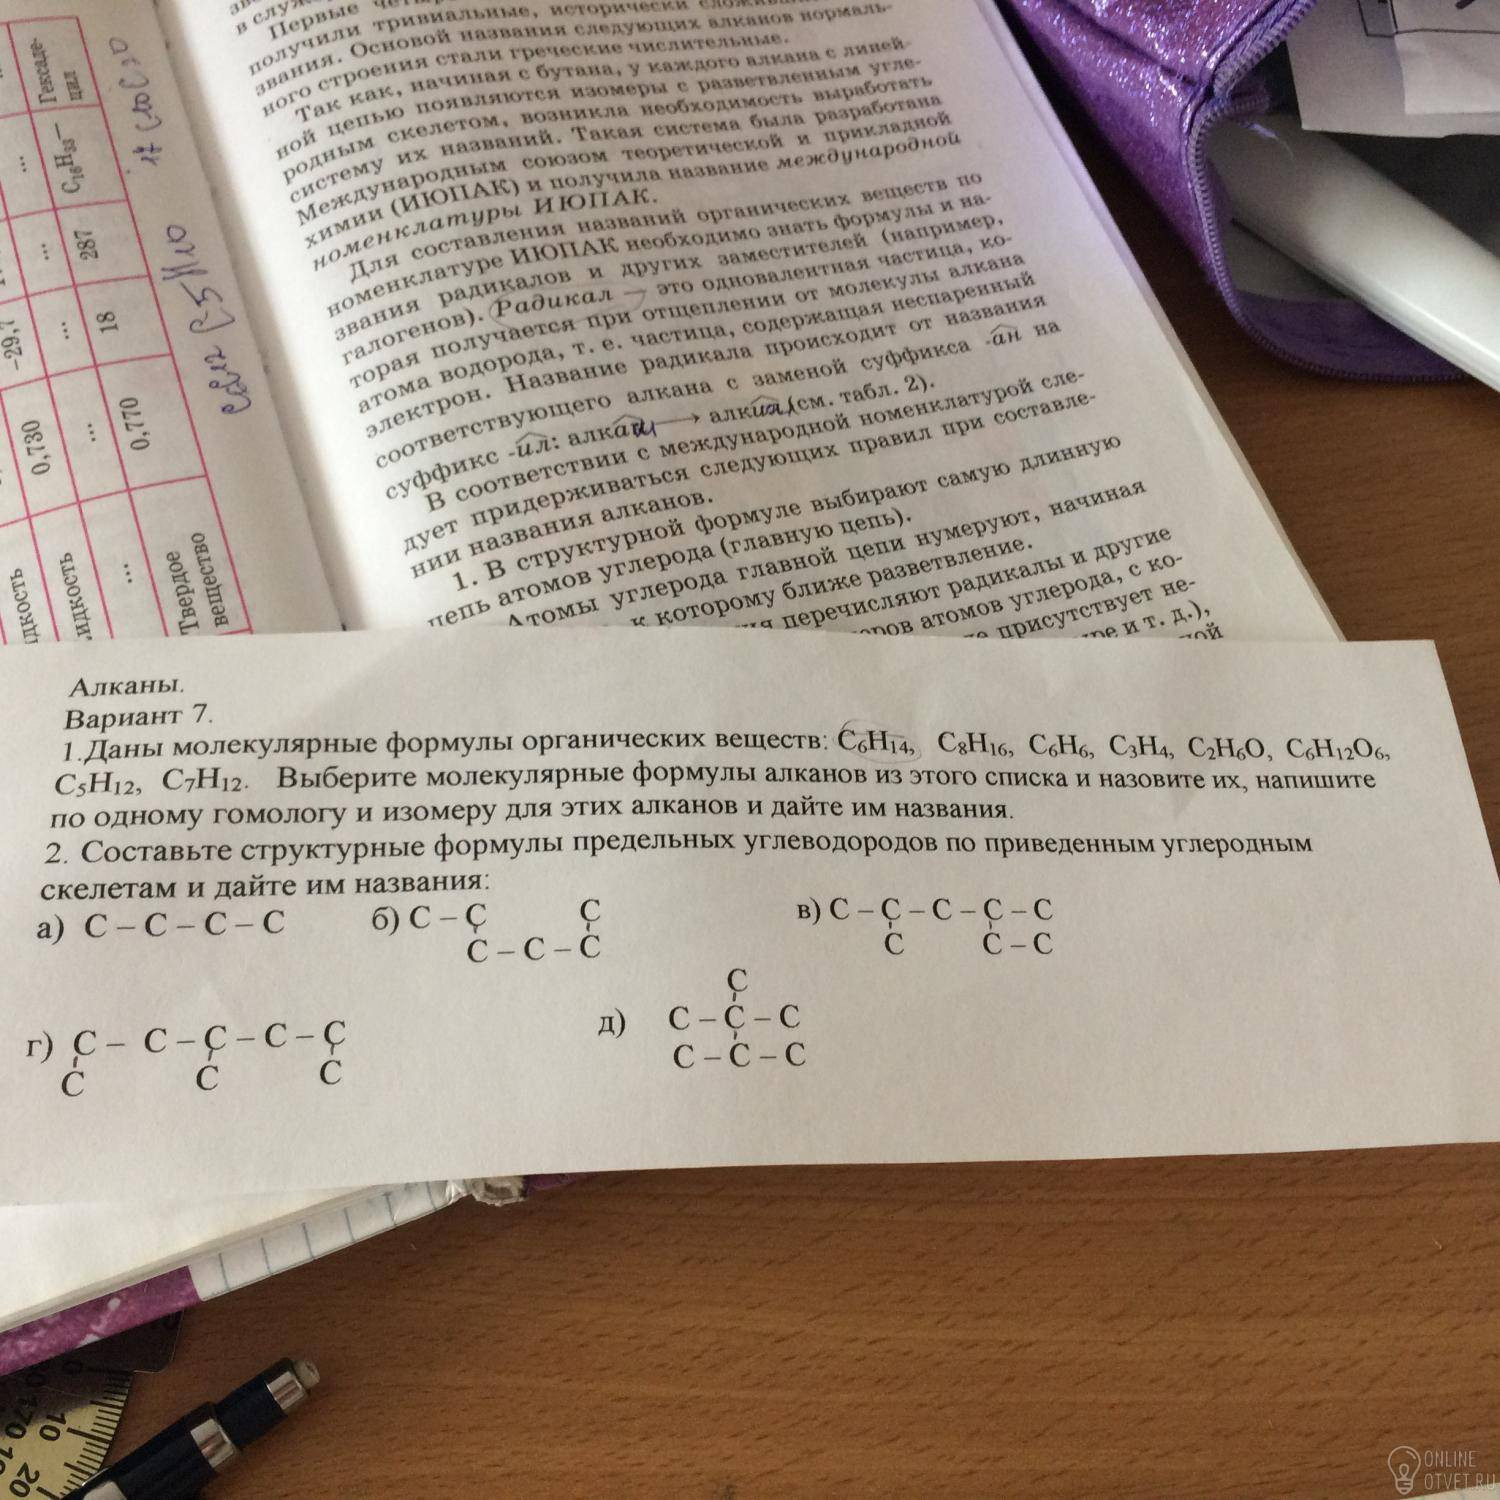 получили тривиальные, исторически
звания. Основой названия следующих алканов нормаль-
ного строения стали греческие числительные.
Так как, начиная с бутана, у каждого алкана с линей-
ной цепью появляются изомеры с разветвленным угле-
родным скелетом, возникла необходимость выработать
систему их названий. Такая система была разработана
Международным союзом теоретической и прикладной
химии (ИЮПАК) и получила название международной
номенклатуры ИЮПАК.
Для составления названий органических веществ по
номенклатуре ИЮПАК необходимо знать формулы и на-
звания радикалов и других заместителей (например,
галогенов). Радикал — это одновалентная частица, ко-
торая получается при отщеплении от молекулы алкана
атома водорода, т. е. частица, содержащая неспаренный
электрон. Название радикала происходит от названия
соответствующего алкана с заменой суффикса -ан на
суффикс -ил: алкан → алкил (см. табл. 2).
В соответствии с международной номенклатурой сле-
дует придерживаться следующих правил при составле-
нии названия алканов.
1. В структурной формуле выбирают самую длинную
цепь атомов углерода (главную цепь).
Атомы углерода главной цепи нумеруют, начиная
к которому ближе разветвление.
перечисляют радикалы и другие
атомов углерода, с ко-
присутствует не-
и т. д.),
... Гексаде-
цил
... C₁₆H₃₃—
... 287
-29,7 ... 18
0,730 ... 0,770
... Твердое
вещество
Алканы.
Вариант 7.
1.Даны молекулярные формулы органических веществ: C₆H₁₄, C₈H₁₆, C₆H₆, C₃H₄, C₂H₆O, C₆H₁₂O₆,
C₅H₁₂, C₇H₁₂. Выберите молекулярные формулы алканов из этого списка и назовите их, напишите
по одному гомологу и изомеру для этих алканов и дайте им названия.
2. Составьте структурные формулы предельных углеводородов по приведенным углеродным
скелетам и дайте им названия:
а) C – C – C – C б) C – C C в) C – C – C – C – C
C – C – C C C – C
C
г) C – C – C – C – C д) C – C – C
C C C C – C – C
ONLINE
OTVET.RU